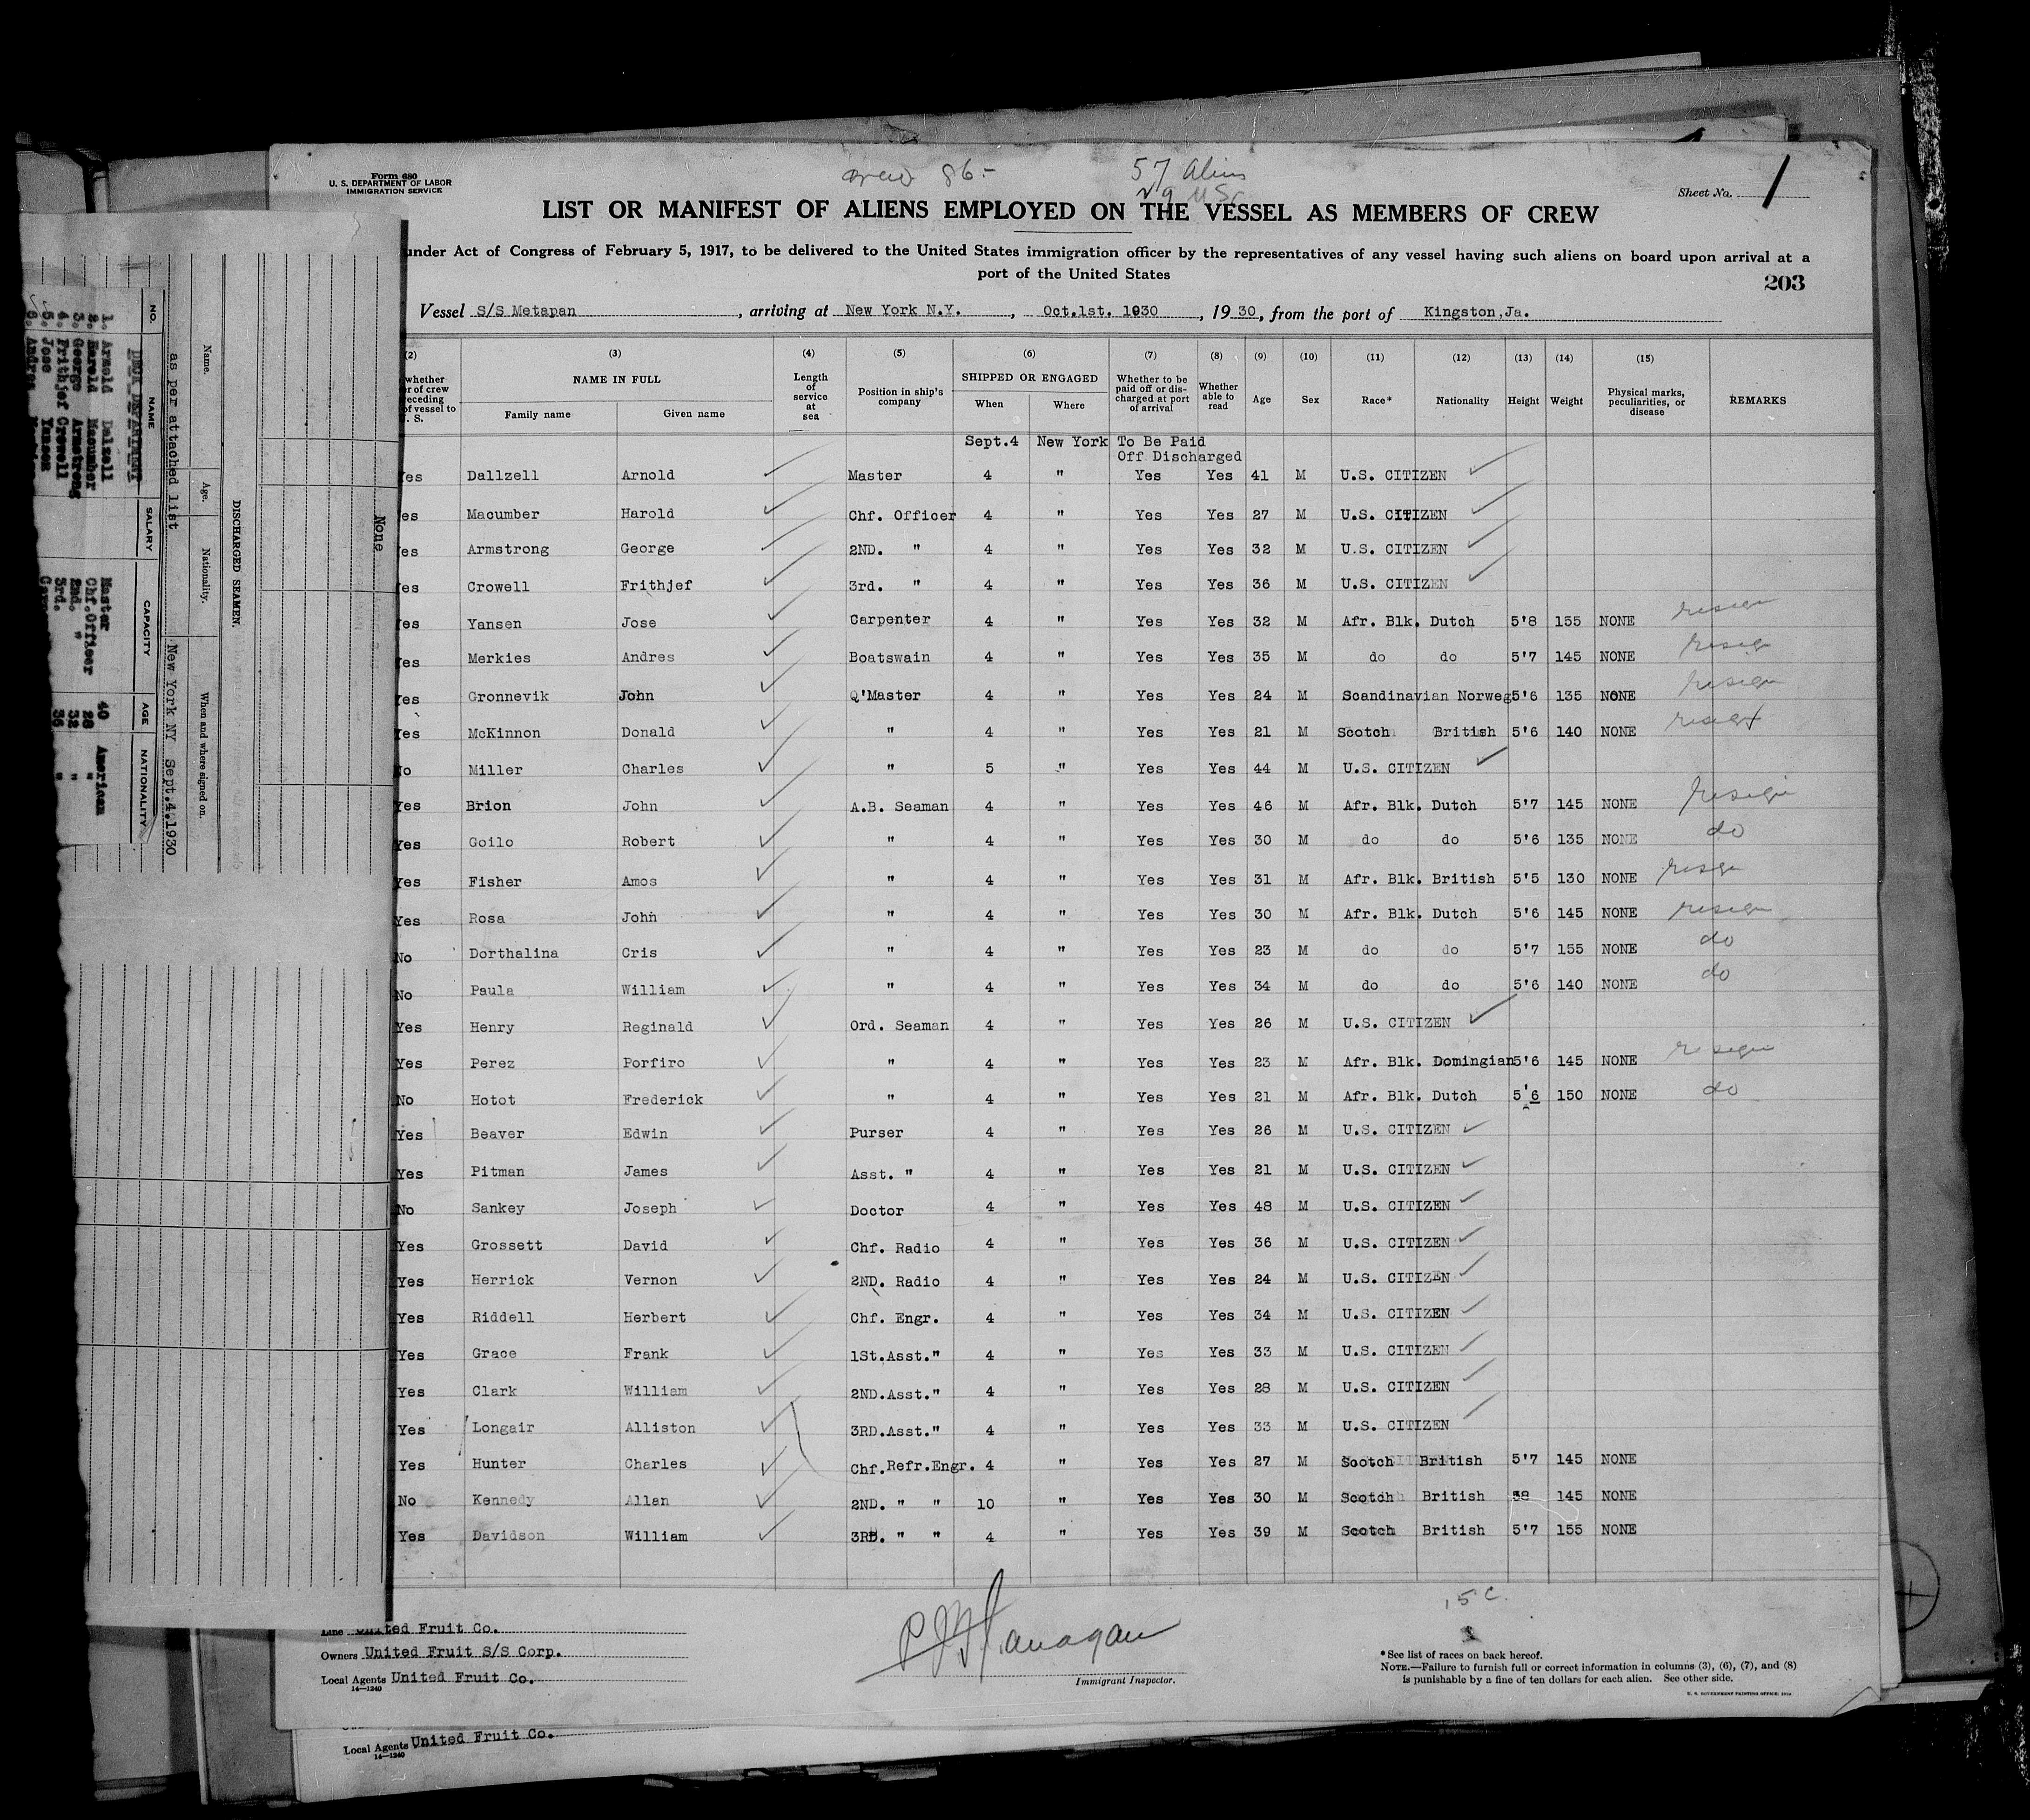 Form 680
U. S. DEPARTMENT OF LABOR
IMMIGRATION SERVICE
crew 86-
57 Aliens
29 U.S.C
Sheet No. 1
LIST OR MANIFEST OF ALIENS EMPLOYED ON THE VESSEL AS MEMBERS OF CREW
under Act of Congress of February 5, 1917, to be delivered to the United States immigration officer by the representatives of any vessel having such aliens on board upon arrival at a
port of the United States
203
Vessel S/S Metapan, arriving at New York N.Y., Oct.1st. 1930, 1930, from the port of Kingston,Ja.
(2) (3) (4) (5) (6) (7) (8) (9) (10) (11) (12) (13) (14) (15)
whether
of crew
preceding
of vessel to
U. S.
NAME IN FULL
Family name Given name
Length of service at sea
Position in ship's company
SHIPPED OR ENGAGED
When Where
Whether to be paid off or discharged at port of arrival
Whether able to read
Age Sex Race* Nationality Height Weight
Physical marks, peculiarities, or disease
REMARKS
Sept.4 New York To Be Paid
Off Discharged
Yes Dallzell Arnold Master 4 " Yes Yes 41 M U.S. CITIZEN
Yes Macumber Harold Chf. Officer 4 " Yes Yes 27 M U.S. CITIZEN
Yes Armstrong George 2ND. " 4 " Yes Yes 32 M U.S. CITIZEN
Yes Crowell Frithjef 3rd. " 4 " Yes Yes 36 M U.S. CITIZEN
Yes Yansen Jose Carpenter 4 " Yes Yes 32 M Afr. Blk. Dutch 5'8 155 NONE resign
Yes Merkies Andres Boatswain 4 " Yes Yes 35 M do do 5'7 145 NONE resign
Yes Gronnevik John Q'Master 4 " Yes Yes 24 M Scandinavian Norweg 5'6 135 NONE resign
Yes McKinnon Donald " 4 " Yes Yes 21 M Scotch British 5'6 140 NONE resign
No Miller Charles " 5 " Yes Yes 44 M U.S. CITIZEN
Yes Brion John A.B. Seaman 4 " Yes Yes 46 M Afr. Blk. Dutch 5'7 145 NONE resign
Yes Goilo Robert " 4 " Yes Yes 30 M do do 5'6 135 NONE do
Yes Fisher Amos " 4 " Yes Yes 31 M Afr. Blk. British 5'5 130 NONE resign
Yes Rosa John " 4 " Yes Yes 30 M Afr. Blk. Dutch 5'6 145 NONE resign
No Dorthalina Cris " 4 " Yes Yes 23 M do do 5'7 155 NONE do
No Paula William " 4 " Yes Yes 34 M do do 5'6 140 NONE do
Yes Henry Reginald Ord. Seaman 4 " Yes Yes 26 M U.S. CITIZEN
Yes Perez Porfiro " 4 " Yes Yes 23 M Afr. Blk. Domingian 5'6 145 NONE resign
No Hotot Frederick " 4 " Yes Yes 21 M Afr. Blk. Dutch 5'6 150 NONE do
Yes Beaver Edwin Purser 4 " Yes Yes 26 M U.S. CITIZEN
Yes Pitman James Asst. " 4 " Yes Yes 21 M U.S. CITIZEN
No Sankey Joseph Doctor 4 " Yes Yes 48 M U.S. CITIZEN
Yes Grossett David Chf. Radio 4 " Yes Yes 36 M U.S. CITIZEN
Yes Herrick Vernon 2ND. Radio 4 " Yes Yes 24 M U.S. CITIZEN
Yes Riddell Herbert Chf. Engr. 4 " Yes Yes 34 M U.S. CITIZEN
Yes Grace Frank 1St.Asst." 4 " Yes Yes 33 M U.S. CITIZEN
Yes Clark William 2ND.Asst." 4 " Yes Yes 28 M U.S. CITIZEN
Yes Longair Alliston 3RD.Asst." 4 " Yes Yes 33 M U.S. CITIZEN
Yes Hunter Charles Chf.Refr.Engr. 4 " Yes Yes 27 M Scotch British 5'7 145 NONE
No Kennedy Allan 2ND. " " 10 " Yes Yes 30 M Scotch British 38 145 NONE
Yes Davidson William 3RD. " " 4 " Yes Yes 39 M Scotch British 5'7 155 NONE
Line United Fruit Co.
Owners United Fruit S/S Corp.
Local Agents United Fruit Co.
14—1240
P J Flanagan
Immigrant Inspector.
15 C.
*See list of races on back hereof.
NOTE.—Failure to furnish full or correct information in columns (3), (6), (7), and (8)
is punishable by a fine of ten dollars for each alien. See other side.
U. S. GOVERNMENT PRINTING OFFICE
Local Agents United Fruit Co.
14—1240
None
DISCHARGED SEAMEN.
Name. Age. Nationality. When and where signed on.
as per attached list New York NY Sept.4.1930
NO. NAME SALARY CAPACITY AGE NATIONALITY
DECK DEPARTMENT
1. Arnold Dalzell Master 40 American
2. Harold Macumber Chf.Officer 28 "
3. George Armstrong 2nd. " 32 "
4. Frithjef Crowell 3rd. 36 "
5. Jose Yansen
6. Andres